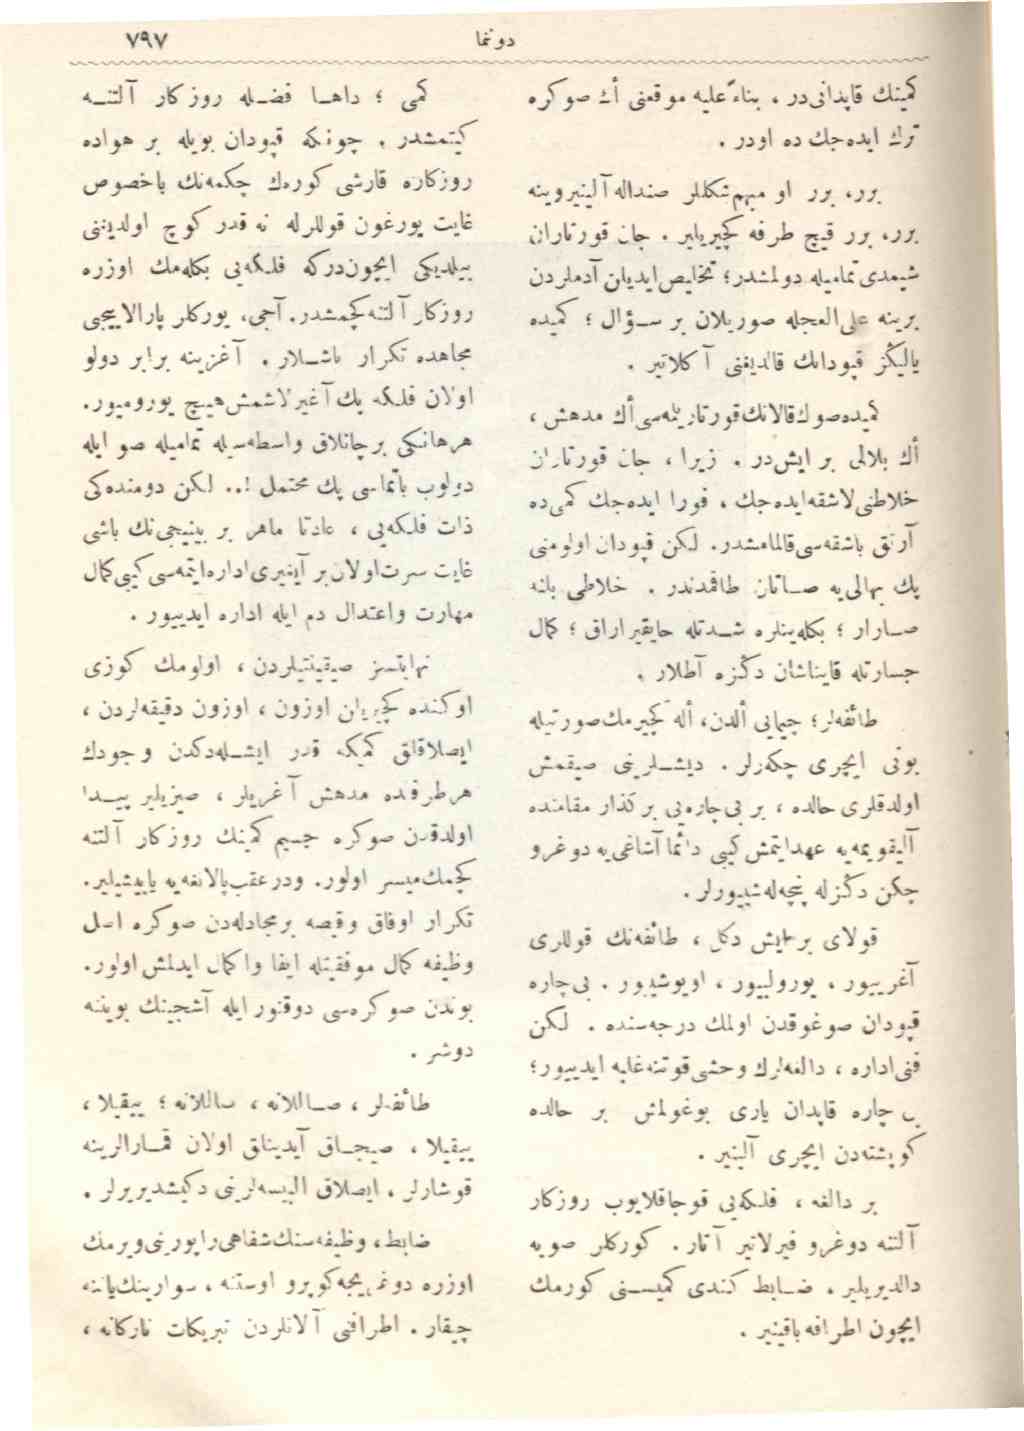 دوننما
٧٩٧
كمینك قاپدانی‌در ، بناءً علیه موقعنی أڭ صوكره
ترك ایده‌جك ده اودر .
برر، برر او مبهم شكللر صنداله آلینیروینه
برر، برر قیچ طرفه كچیریلیر . جان قورتاران
شیمدی تمامیله دولمشدر؛ تخلیص ایدیلن آدملردن
برینه علی‌العجله صوریلان بر سـؤال ؛ كمیده
یالیڭز قپودانك قالدیغنی آكلاتیر .
كمیده‌صوڭ‌قالانك‌قورتاریلمه‌سی‌أڭ مدهش ،
أڭ بلالی بر ایش‌در . زیرا ، جان قورتاران
خلاطنی‌لاشقه‌ایده‌جك ، فورا ایده‌جك كمی‌ده
آرتق باشقه‌سی‌قالمامشدر. لكن قپودان اولومنی
پك بهالی‌یه صـاتان طاقمدندر . خلاطی بلنه
صـارار ؛ بكله‌ینلره شـدتله حایقیراراق ؛ كمال
جسارتله قایناشان دڭزه آطلار .
طائفه‌لر؛ چیمایی ألدن، أله كچیرمك‌صورتیله
بونی ایچری چكه‌رلر . دیشـلرینی صیقمش
اولدقلری حالده ، بر بی‌چاره‌یی بر كذار مقامنده
آلیقویمه‌یه عهدایتمش كیبی دائما آشاغی‌یه دوغرو
چكن دڭزله پنچه‌له‌شییورلر .
قولای بر ایش دكل ، طائفه‌نك قوللری
آغرییور ، یورولییور ، اویوشییور . بی‌چاره
قپودان صوغوقدن اولمك درجه‌سنده . لكن
فنی‌اداره ، دالغه‌لرك وحشی‌قوتنه‌غلبه ایدییور؛
بی چاره قاپدان یاری بوغولمش بر حالده
كوپشته‌دن ایچری آلینیر .
بر دالغه ، فلكه‌یی قوجاقلایوب روزكار
آلتنه دوغرو فیرلاتیر آتار. كورك‌لر صویه
دالدیریلیر . ضـابط كندی كمیسـنی كورمك
ایچون اطرافه‌باقینیر .
كمی ؛ داهـا فضـله روزكار آلتنـه
كیتمشدر . چونكه قپودان بویله بر هواده
روزكاره قارشی كوره‌ك چكمه‌نك باخصوص
غایت یورغون قوللرله نه قدر كوچ اولدیغنی
بیلدیكی ایچون‌دركه فلكه‌یی بكله‌مك اوزره
روزكار آلتنه‌كچمشدر. آجی، یورك‌لر پارالاییجی
مجاهده تكرار باشـلار . آغزینه برابر دولو
اولان فلكه پك آغیرلاشمش‌هیـچ یورومیور.
هرهانكی برچاتلاق واسطه‌سیله تمامیله صو ایله
دولوب باتماسی پك محتمل !.. لكن دومنده‌كی
ذات فلكه‌یی ، عادتا ماهر بر بینیجی‌نك باشی
غایت سرت‌اولان‌بر آیغیری‌اداره‌ایتمه‌سی‌كیبی‌كمال
مهارت واعتدال دم ایله اداره ایدییور .
نهایتسز صیقینتیلردن ، اولومك كوزی
اوكنده كچیریلن اوزون ، اوزون دقیقه‌لردن ،
ایصلاقلق كمیكه قدر ایشـله‌دكدن وجودك
هرطرفنده مدهش آغریلر ، صیزیلیر پیـدا
اولدقدن صوكره جسیم كمینك روزكار آلتنه
كچمك‌میسر اولور. ودرعقب‌پالانغه‌یه یاپیشیلیر.
تكرار اوفاق وقیصه برمجادله‌دن صوكره اصل
وظیفه كمال موفقیتله ایفا واكمال ایدلمش اولور.
بوندن صوكره‌سی دوقتور ایله آشجینك بویننه
دوشر .
طائفه‌لر ، صـاللانه ، صاللانه ؛ ییقیلا ،
ییقیلا ، صیجـاق آیدینلق اولان قمـارالرینه
قوشارلر . ایصلاق البیسه‌لرینی دكیشدیریرلر .
ضابط، وظیفه‌سنك‌شفاهی‌راپورینی‌ویرمك
اوزره دوغریجه‌كوپرو اوستنه ، سوارینك‌یاننه
چیقار . اطرافنی آلانلردن تبریكات نازكانه ،